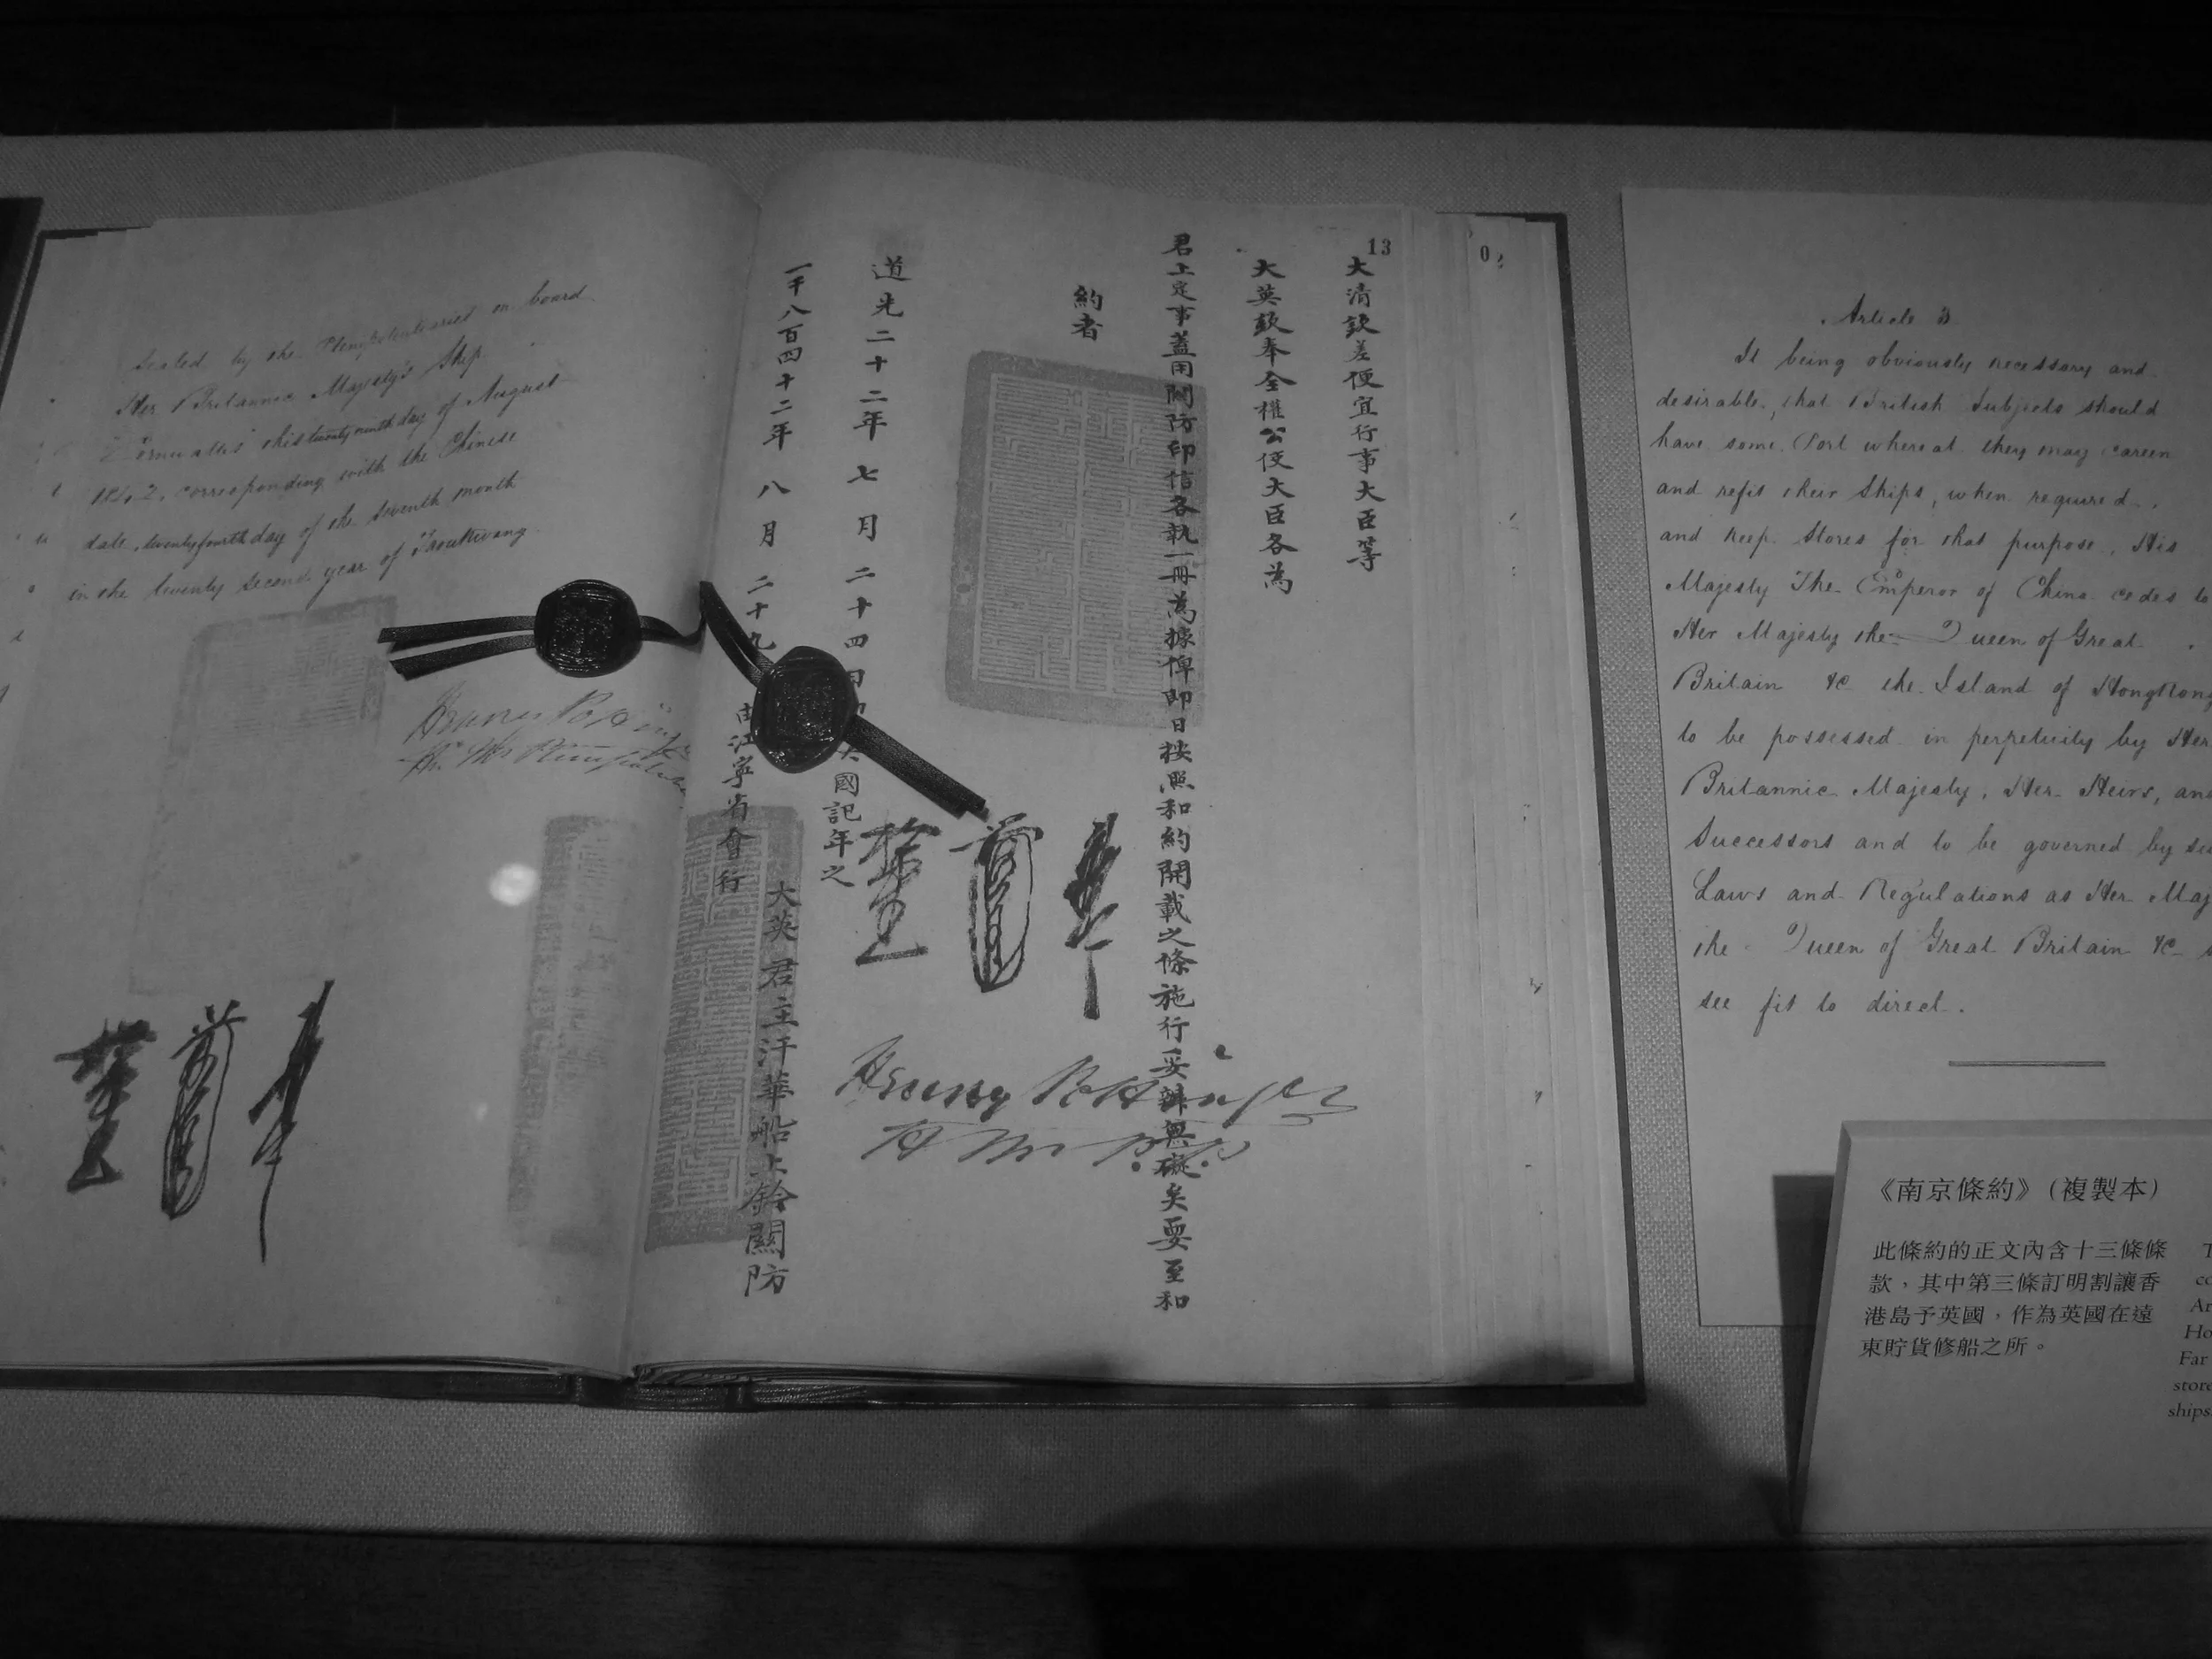 Sealed by the Plenipotentiaries on board
Her Britannic Majesty's Ship
this twenty ninth day of August
1842, corresponding with the Chinese
date, twenty fourth day of the seventh month
in the twenty second year of Taoukwang
Henry Pottinger
13
大清欽差便宜行事大臣等
大英欽奉全權公使大臣各為
君上定事蓋用關防印信各執一冊為據俾即日按照和約開載之條施行妥辦無礙矣要至和
約者
道光二十二年七月二十四日
國記年之
一千八百四十二年八月二十九
由江寧省會行
大英君主汗華船上鈐關防
Henry Pottinger
0
Article 3
It being obviously necessary and
desirable, that British Subjects should
have some Port whereat they may careen
and refit their Ships, when required,
and keep Stores for that purpose, His
Majesty The Emperor of China cedes to
Her Majesty the Queen of Great
Britain &c the Island of HongKong
to be possessed in perpetuity by Her
Britannic Majesty, Her Heirs, and
Successors and to be governed by
Laws and Regulations as Her
the Queen of Great Britain &c
see fit to direct.
《南京條約》(複製本)
此條約的正文內含十三條條
款,其中第三條訂明割讓香
港島予英國,作為英國在遠
東貯貨修船之所。
Far
ships